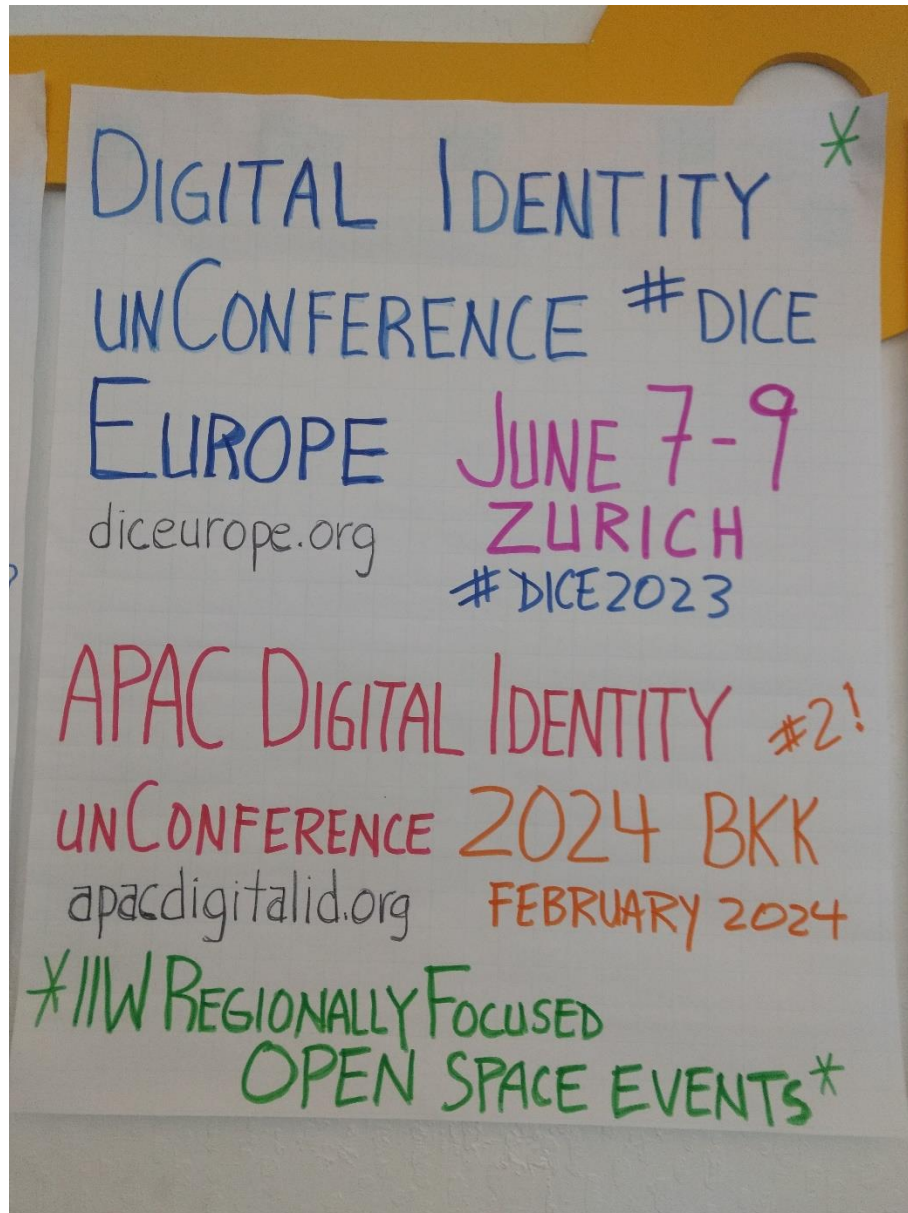 DIGITAL IDENTITY *
UNCONFERENCE #DICE
EUROPE JUNE 7-9
diceurope.org ZURICH
#DICE2023
APAC DIGITAL IDENTITY #2!
UNCONFERENCE 2024 BKK
apacdigitalid.org FEBRUARY 2024
*IIW REGIONALLY FOCUSED
OPEN SPACE EVENTS*